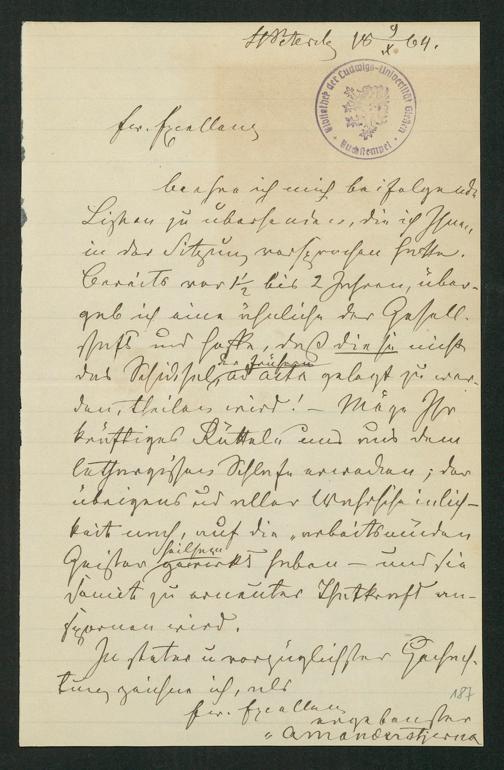 St Petersbg 18 9/X 64.
Bibliothek der Ludwigs-Universität Giessen
Buchstempel
Ew. Excellenz
beehre ich mich beifolgende
Listen zu übersenden, die ich Ihnen,
in der Sitzung versprochen hatte.
Bereits vor 1½ bis 2 Jahren, über-
gab ich eine ähnliche der Gesell-
schaft und hoffe, daß diese nicht
das Schicksal, der früheren ad acta gelegt zu wer-
den, theilen wird! – Möge Ihr
kräftiges Rütteln uns aus dem
lethargischen Schlafe erwecken; der
übrigens aller Wahrscheinlich-
keit nach, auf die „arbeitsmüden
Geister heilsam gewirkt haben – und sie
damit zu erneuter Thatkraft an-
spornen wird.
In steter u vorzüglichster Hochach-
tung zeichne ich, als
Ew. Excellenz
ergebenster
187